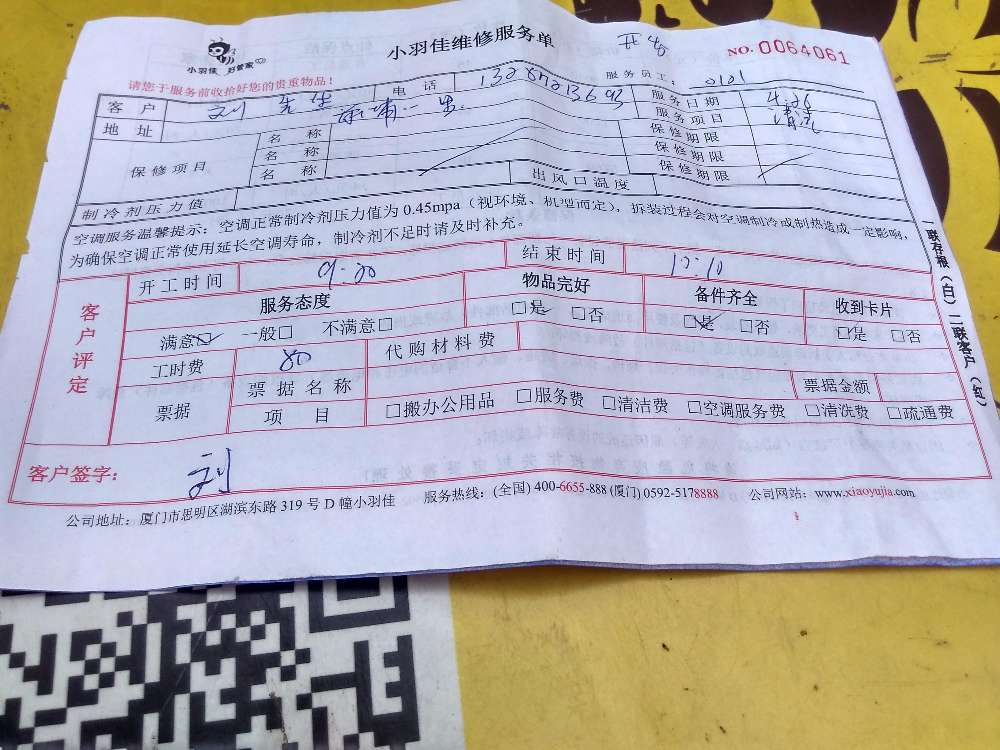 小羽佳 好管家
小羽佳维修服务单
NO. 0064061
请您于服务前收拾好您的贵重物品！
服务员工： 0101
客户 刘先生 电话
服务日期 4.26
地址
服务项目 清洗
保修项目 名称 保修期限
名称 保修期限
名称 保修期限
制冷剂压力值 出风口温度
空调服务温馨提示：空调正常制冷剂压力值为 0.45mpa（视环境、机型而定），拆装过程会对空调制冷或制热造成一定影响，
为确保空调正常使用延长空调寿命，制冷剂不足时请及时补充。
开工时间 9:20 结束时间
客户评定
服务态度 物品完好 备件齐全 收到卡片
满意☑ 一般□ 不满意□ □是 □否 ☑是 □否 □是 □否
工时费 80 代购材料费
票据 票据名称 票据金额
项目 □搬办公用品 □服务费 □清洁费 □空调服务费 □清洗费 □疏通费
客户签字： 刘
公司地址：厦门市思明区湖滨东路 319 号 D 幢小羽佳 服务热线：(全国) 400-6655-888 (厦门) 0592-5178888 公司网站：www.xiaoyujia.com
一联存根（白）二联客户（红）